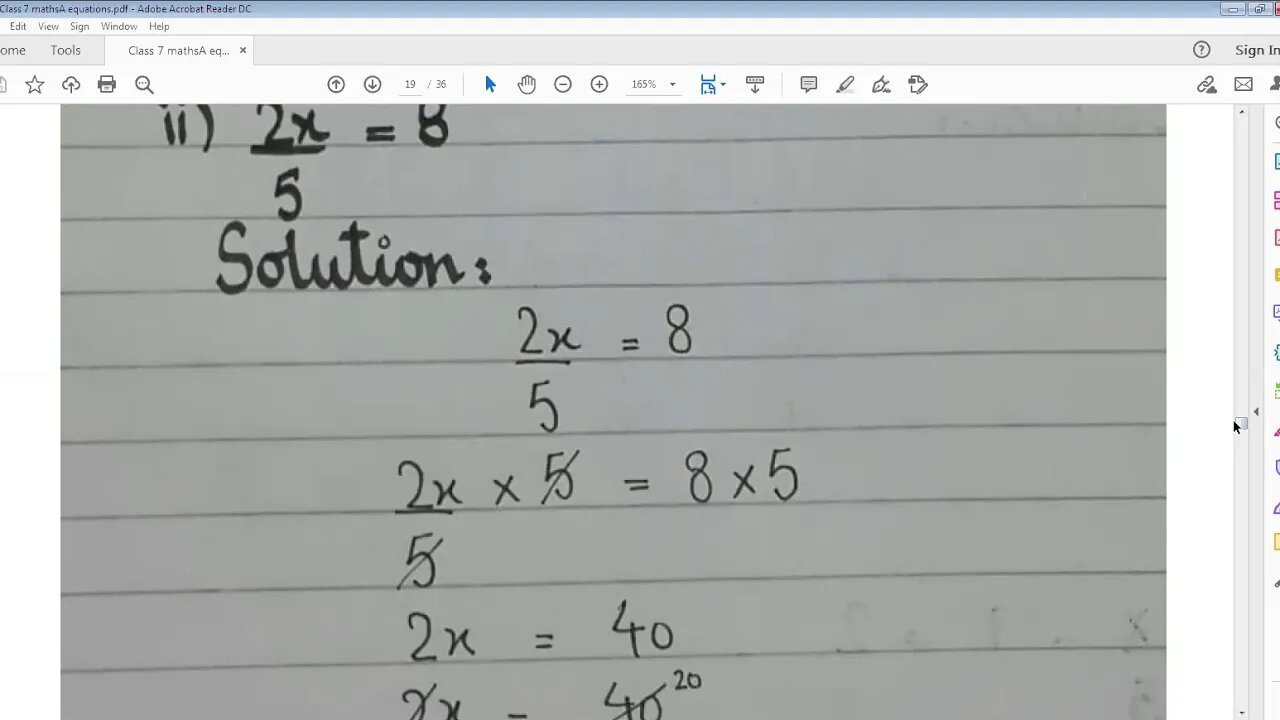 Class 7 mathsA equations.pdf - Adobe Acrobat Reader DC
Edit View Sign Window Help
ome Tools Class 7 mathsA eq... × Sign In
19 / 36 165%
ii) 2x = 8
5
Solution:
2x = 8
5
2x × 5 = 8 × 5
5
2x = 40
2x = 40 20